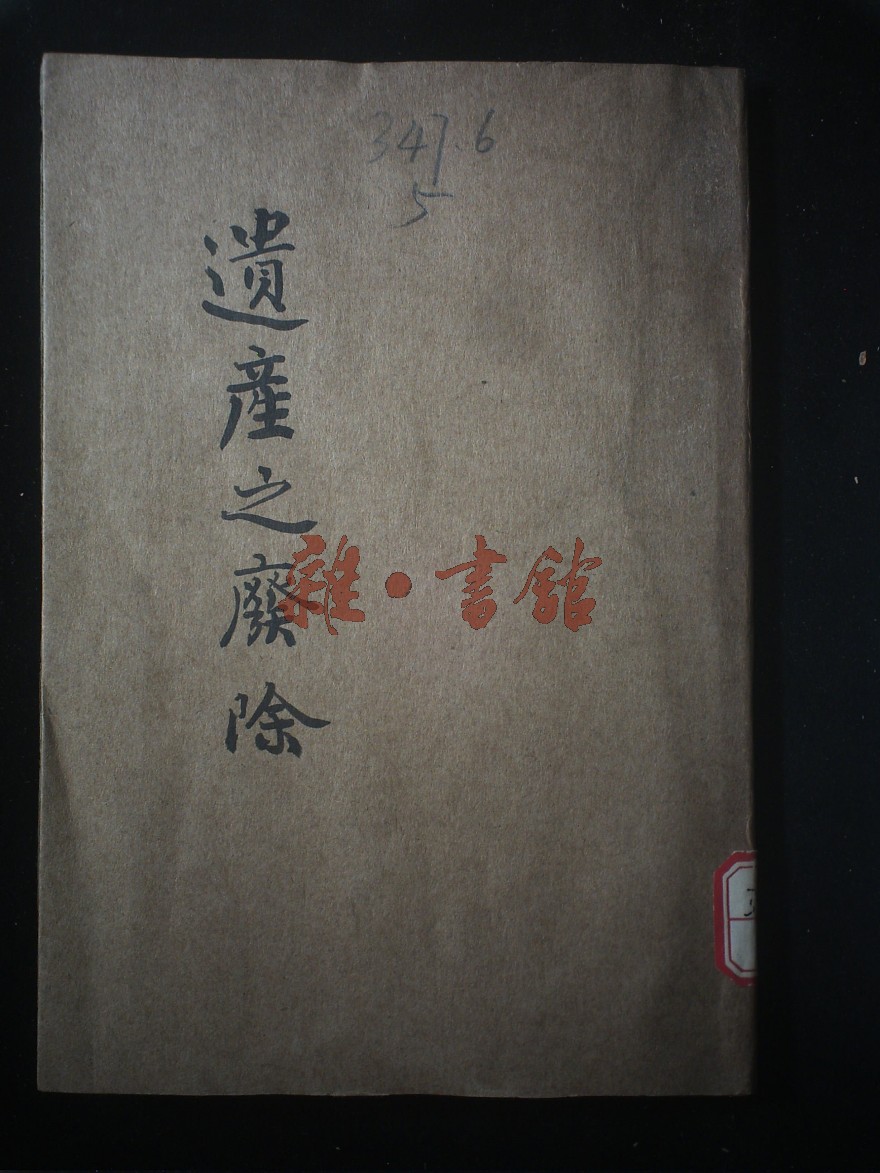 347.6
5
遺產之廢除
雜·書館